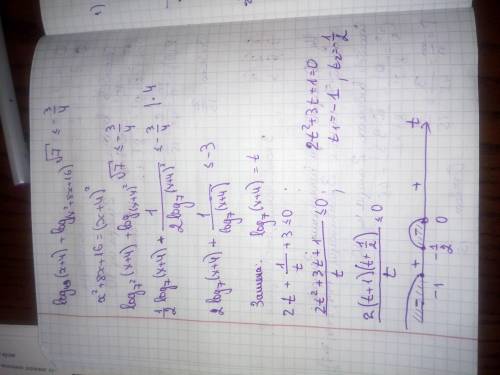 log₄₉(x+4) + log₍ₓ²₊₈ₓ₊₁₆₎ √7 ≤ -3/4
x²+8x+16 = (x+4)²
log₇²(x+4) + log₍ₓ₊₄₎² √7 ≤ -3/4
1/2 log₇(x+4) + 1/(2log₇(x+4)²) ≤ -3/4 | ·4
2log₇(x+4) + 1/(log₇(x+4)) ≤ -3
Замена: log₇(x+4) = t
2t + 1/t + 3 ≤ 0 ;
(2t²+3t+1)/t ≤ 0 ; 2t²+3t+1=0
t₁=-1 ; t₂=-1/2
(2(t+1)(t+1/2))/t ≤ 0
- + - + t
-1 -1/2 0